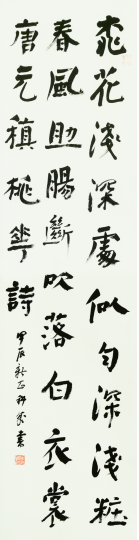 桃花淺深處似勻深淺粧
春風助腸斷吹落白衣裳
唐元稹桃華詩
甲辰秋正